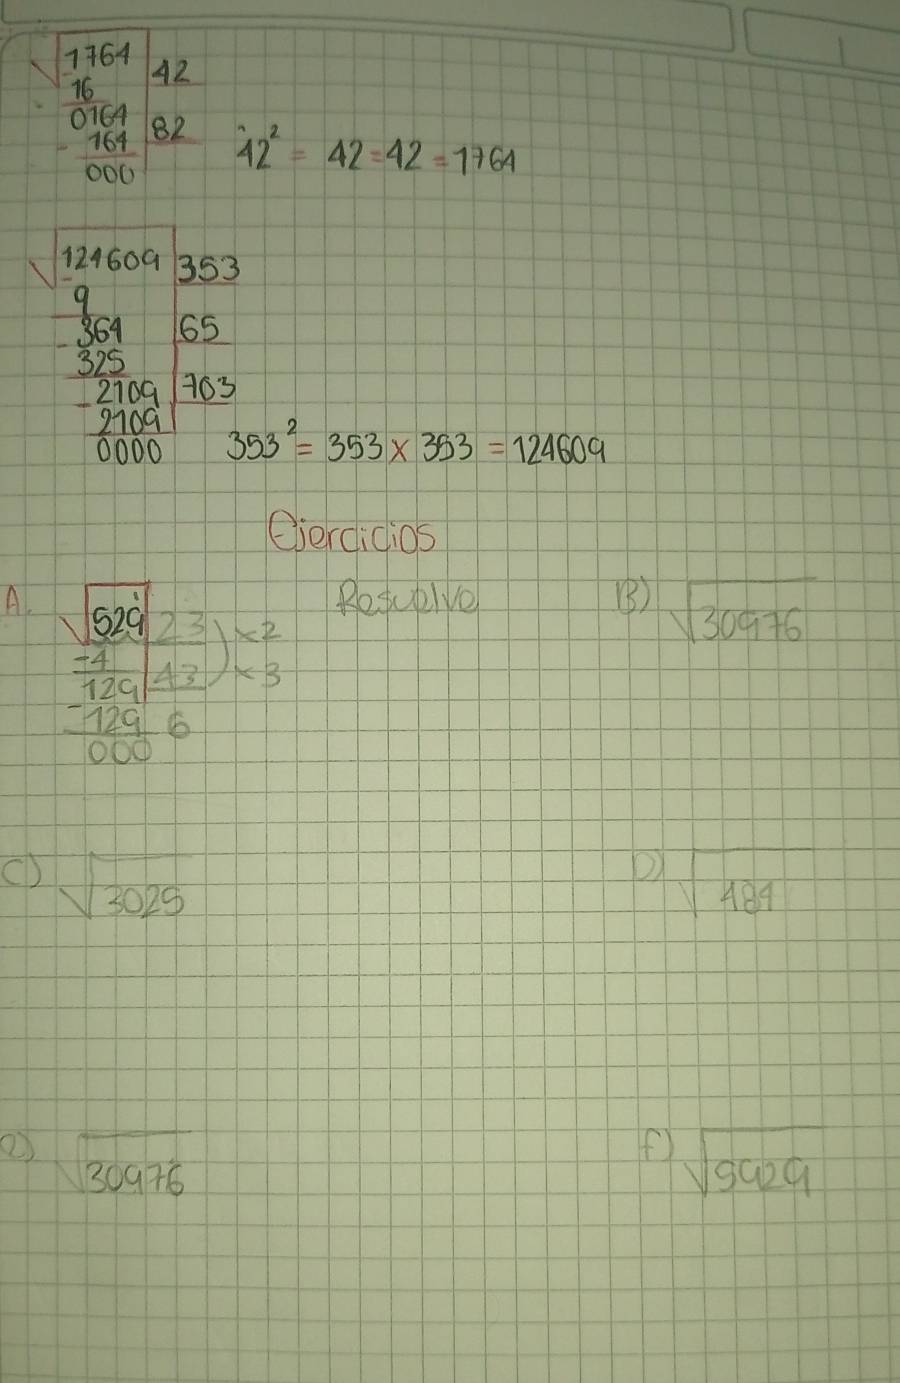 √1764 42
16
0164 82
- 164
000
42² = 42 = 42 = 1764
√124609 353
9
- 364 65
325
- 2109 703
2109
0000
353² = 353 x 353 = 124609
Ejercicios
Resuelve
A. √529 23 x2
-4
129 43 x3
-129 6
000
B) √30976
C) √3025
D) √484
e) √30976
f) √5929